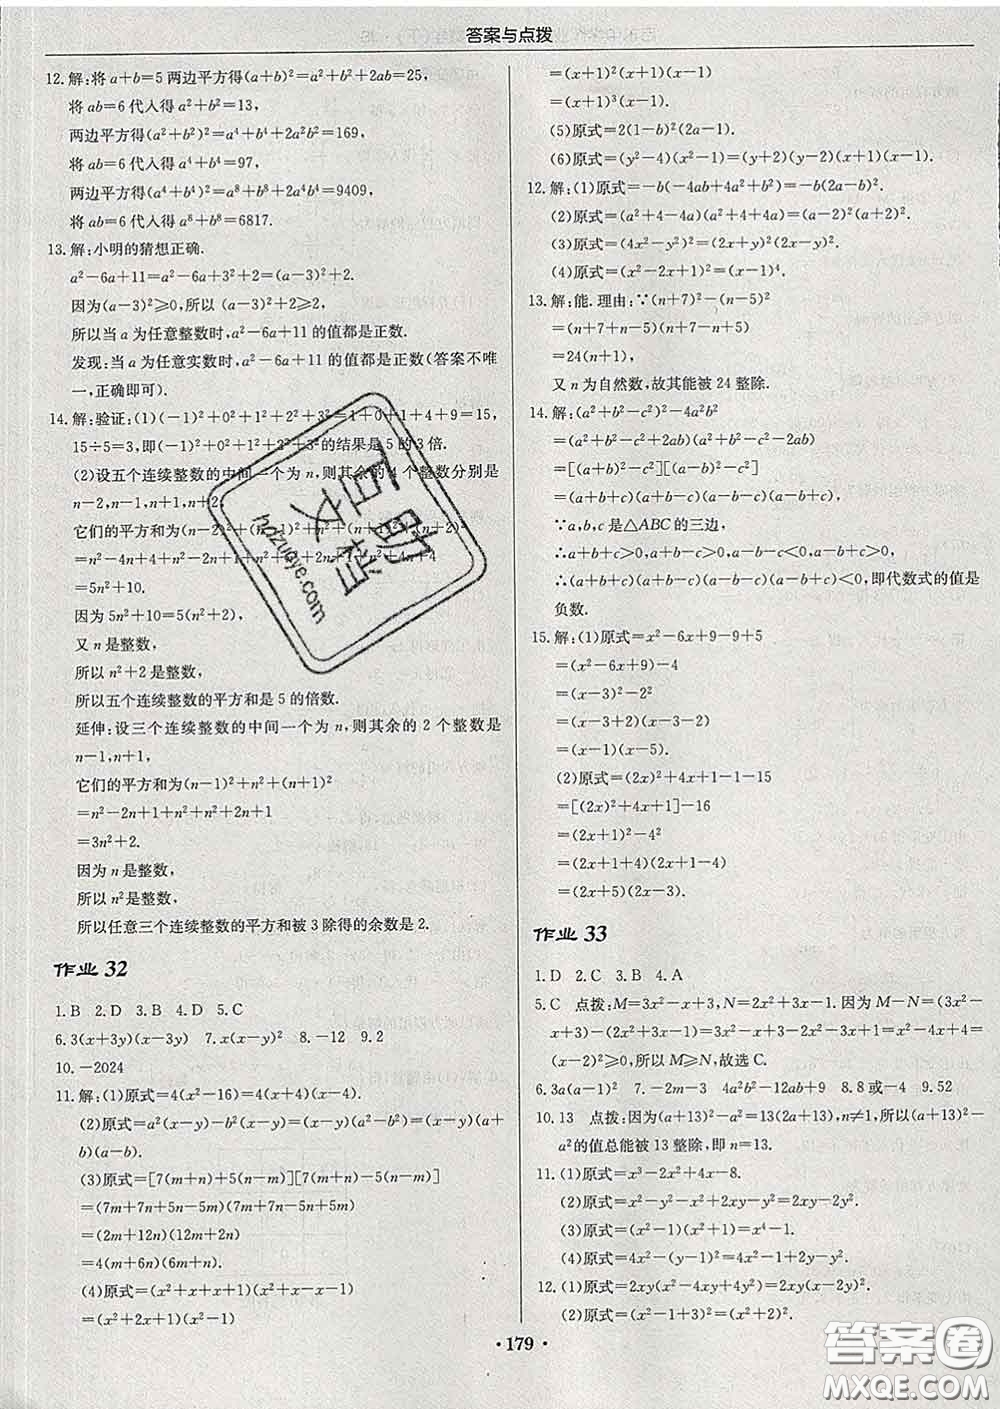 答案与点拨
12.解:将a+b=5两边平方得(a+b)²=a²+b²+2ab=25,
将ab=6代入得a²+b²=13,
两边平方得(a²+b²)²=a⁴+b⁴+2a²b²=169,
将ab=6代入得a⁴+b⁴=97,
两边平方得(a⁴+b⁴)²=a⁸+b⁸+2a⁴b⁴=9409,
将ab=6代入得a⁸+b⁸=6817.
13.解:小明的猜想正确.
a²-6a+11=a²-6a+3²+2=(a-3)²+2.
因为(a-3)²≥0,所以(a-3)²+2≥2,
所以当a为任意整数时,a²-6a+11的值都是正数.
发现:当a为任意实数时,a²-6a+11的值都是正数(答案不唯
一,正确即可).
14.解:验证:(1)(-1)²+0²+1²+2²+3²=1+0+1+4+9=15,
15÷5=3,即(-1)²+0²+1²+2²+3²的结果是5的3倍.
(2)设五个连续整数的中间一个为n,则其余的4个整数分别是
n-2,n-1,n+1,n+2,
它们的平方和为(n-2)²+(n-1)²+n²+(n+1)²+(n+2)²
=n²-4n+4+n²-2n+1+n²+n²+2n+1+n²+4n+4
=5n²+10.
因为5n²+10=5(n²+2),
又n是整数,
所以n²+2是整数,
所以五个连续整数的平方和是5的倍数.
延伸:设三个连续整数的中间一个为n,则其余的2个整数是
n-1,n+1,
它们的平方和为(n-1)²+n²+(n+1)²
=n²-2n+1+n²+n²+2n+1
=3n²+2.
因为n是整数,
所以n²是整数,
所以任意三个连续整数的平方和被3除得的余数是2.
作业32
1.B 2.D 3.B 4.D 5.C
6.3(x+3y)(x-3y) 7.x(x-y)² 8.-12 9.2
10.-2024
11.解:(1)原式=4(x²-16)=4(x+4)(x-4).
(2)原式=a²(x-y)-b²(x-y)=(x-y)(a²-b²)=(x-y)(a+
b)(a-b).
(3)原式=[7(m+n)+5(n-m)][7(m+n)-5(n-m)]
=(7m+7n+5n-5m)(7m+7n-5n+5m)
=(2m+12n)(12m+2n)
=4(m+6n)(6m+n).
(4)原式=(x²+x+x+1)(x²+x-x-1)
=(x²+2x+1)(x²-1)
=(x+1)²(x+1)(x-1)
=(x+1)³(x-1).
(5)原式=2(1-b)²(2a-1).
(6)原式=(y²-4)(x²-1)=(y+2)(y-2)(x+1)(x-1).
12.解:(1)原式=-b(-4ab+4a²+b²)=-b(2a-b)².
(2)原式=(a²+4-4a)(a²+4+4a)=(a-2)²(a+2)².
(3)原式=(4x²-y²)²=(2x+y)²(2x-y)².
(4)原式=(x²-2x+1)²=(x-1)⁴.
13.解:能.理由:∵(n+7)²-(n-5)²
=(n+7+n-5)(n+7-n+5)
=24(n+1),
又n为自然数,故其能被24整除.
14.解:(a²+b²-c²)²-4a²b²
=(a²+b²-c²+2ab)(a²+b²-c²-2ab)
=[(a+b)²-c²][(a-b)²-c²]
=(a+b+c)(a+b-c)(a-b-c)(a-b+c),
∵a,b,c是△ABC的三边,
∴a+b+c>0,a+b-c>0,a-b-c<0,a-b+c>0,
∴(a+b+c)(a+b-c)(a-b-c)(a-b+c)<0,即代数式的值是
负数.
15.解:(1)原式=x²-6x+9-9+5
=(x²-6x+9)-4
=(x-3)²-2²
=(x-3+2)(x-3-2)
=(x-1)(x-5).
(2)原式=(2x)²+4x+1-1-15
=[(2x)²+4x+1]-16
=(2x+1)²-4²
=(2x+1+4)(2x+1-4)
=(2x+5)(2x-3).
作业33
1.D 2.C 3.B 4.A
5.C 点拨:M=3x²-x+3,N=2x²+3x-1.因为M-N=(3x²-
x+3)-(2x²+3x-1)=3x²-x+3-2x²-3x+1=x²-4x+4=
(x-2)²≥0,所以M≥N,故选C.
6.3a(a-1)² 7.-2m-3 4a²b²-12ab+9 8.8或-4 9.52
10.13 点拨:因为(a+13)²-a²=13(2a+13),n≠1,所以(a+13)²-
a²的值总能被13整除,即n=13.
11.(1)原式=x³-2x²+4x-8.
(2)原式=x²-y²-x²+2xy-y²=2xy-2y².
(3)原式=(x²-1)(x²+1)=x⁴-1.
(4)原式=4x²-(y-1)²=4x²-1+2y-y².
12.(1)原式=2xy(x²-4xy+4y²)=2xy(x-2y)².
(2)原式=(x²-1+3)²=(x²+2)².
·179·
百助文档
hdzuoye.com
答案卷
MXQE.COM